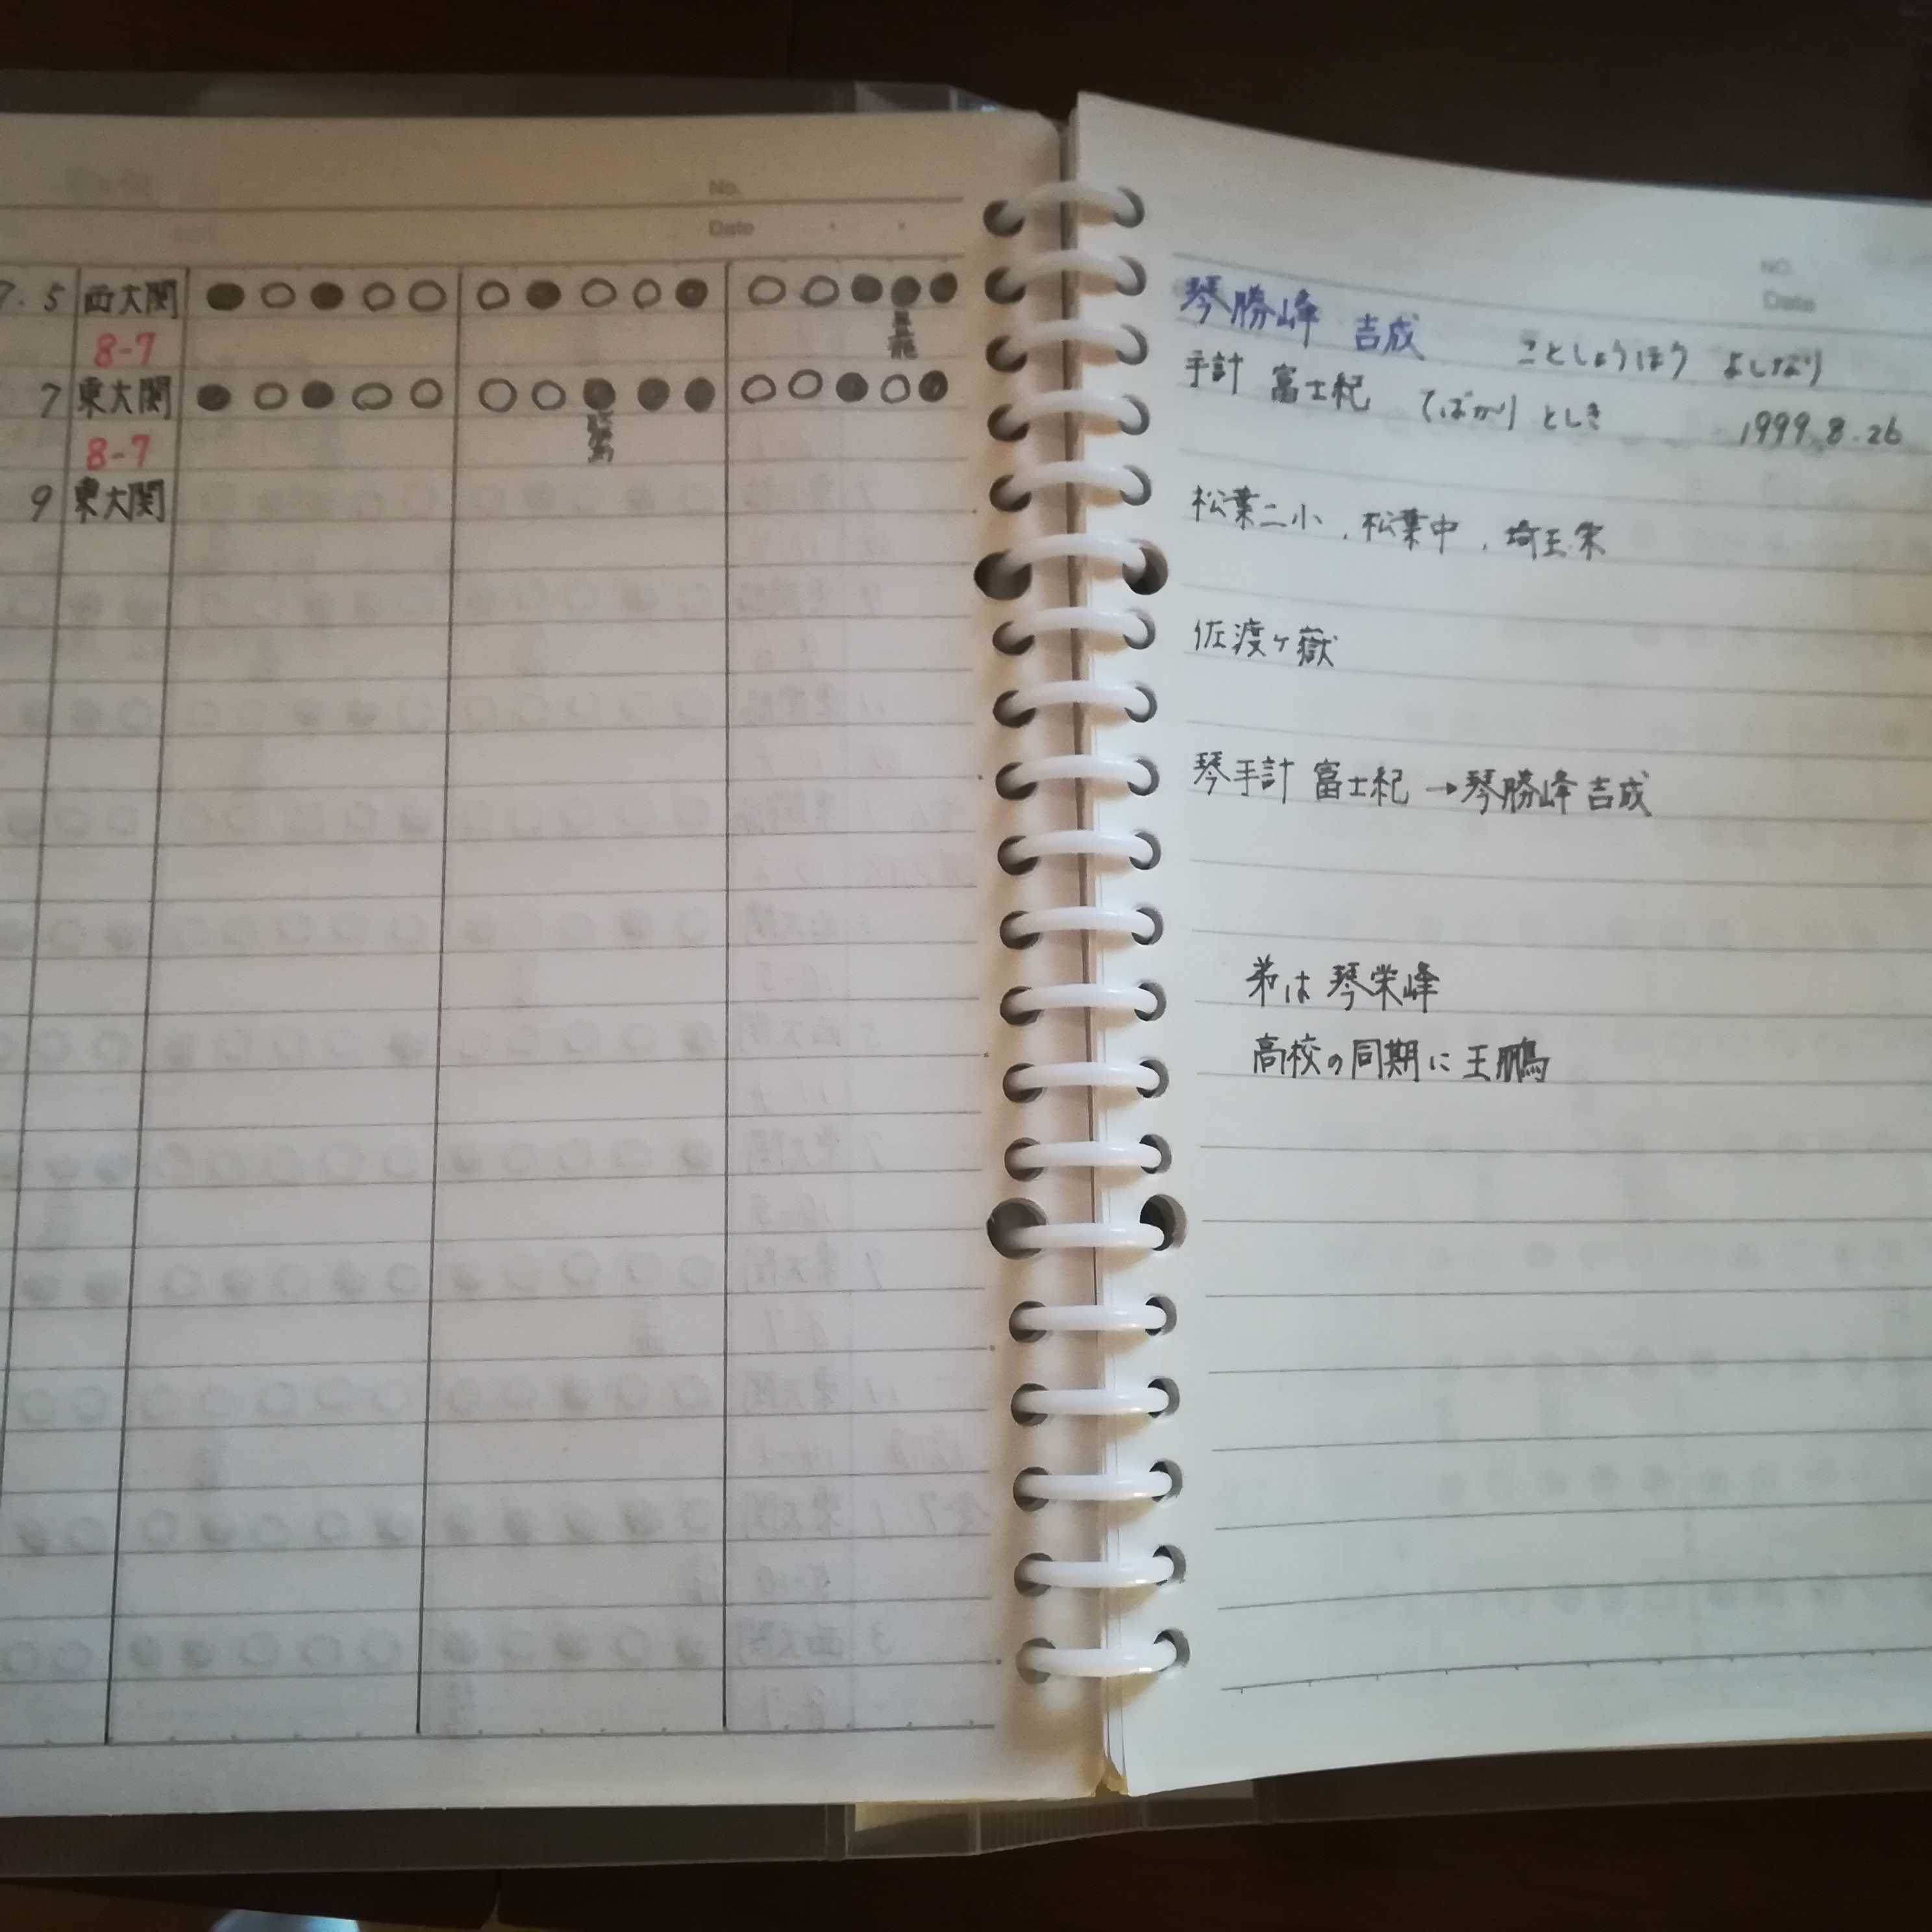 No.
Date
7.5 西大関 ●○●○○ ○●○○● ○○●●●
豊昇龍
8-7
7 東大関 ●○●○○ ○○●●● ○○●○●
8-7
9 東大関
NO.
Date
琴勝峰 吉成 ことしょうほう よしなり
手計 富士紀 てばかり としき 1999.8.26
松葉二小、松葉中、埼玉栄
佐渡ヶ嶽
琴手計 富士紀→琴勝峰 吉成
弟は 琴栄峰
高校の同期に 王鵬